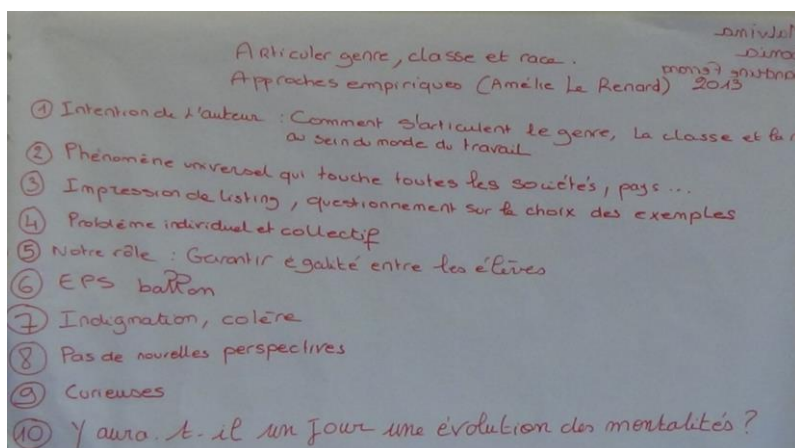 Articuler genre, classe et race.
Approches empiriques (Amélie Le Renard) 2013
① Intention de l'auteur : Comment s'articulent le genre, la classe et la
au sein du monde du travail
② Phénomène universel qui touche toutes les sociétés, pays...
③ Impression de listing, questionnement sur le choix des exemples
④ Problème individuel et collectif
⑤ Notre rôle : Garantir égalité entre les élèves
⑥ EPS ballon
⑦ Indignation, colère
⑧ Pas de nouvelles perspectives
⑨ Curieuses
⑩ Y aura-t-il un jour une évolution des mentalités ?